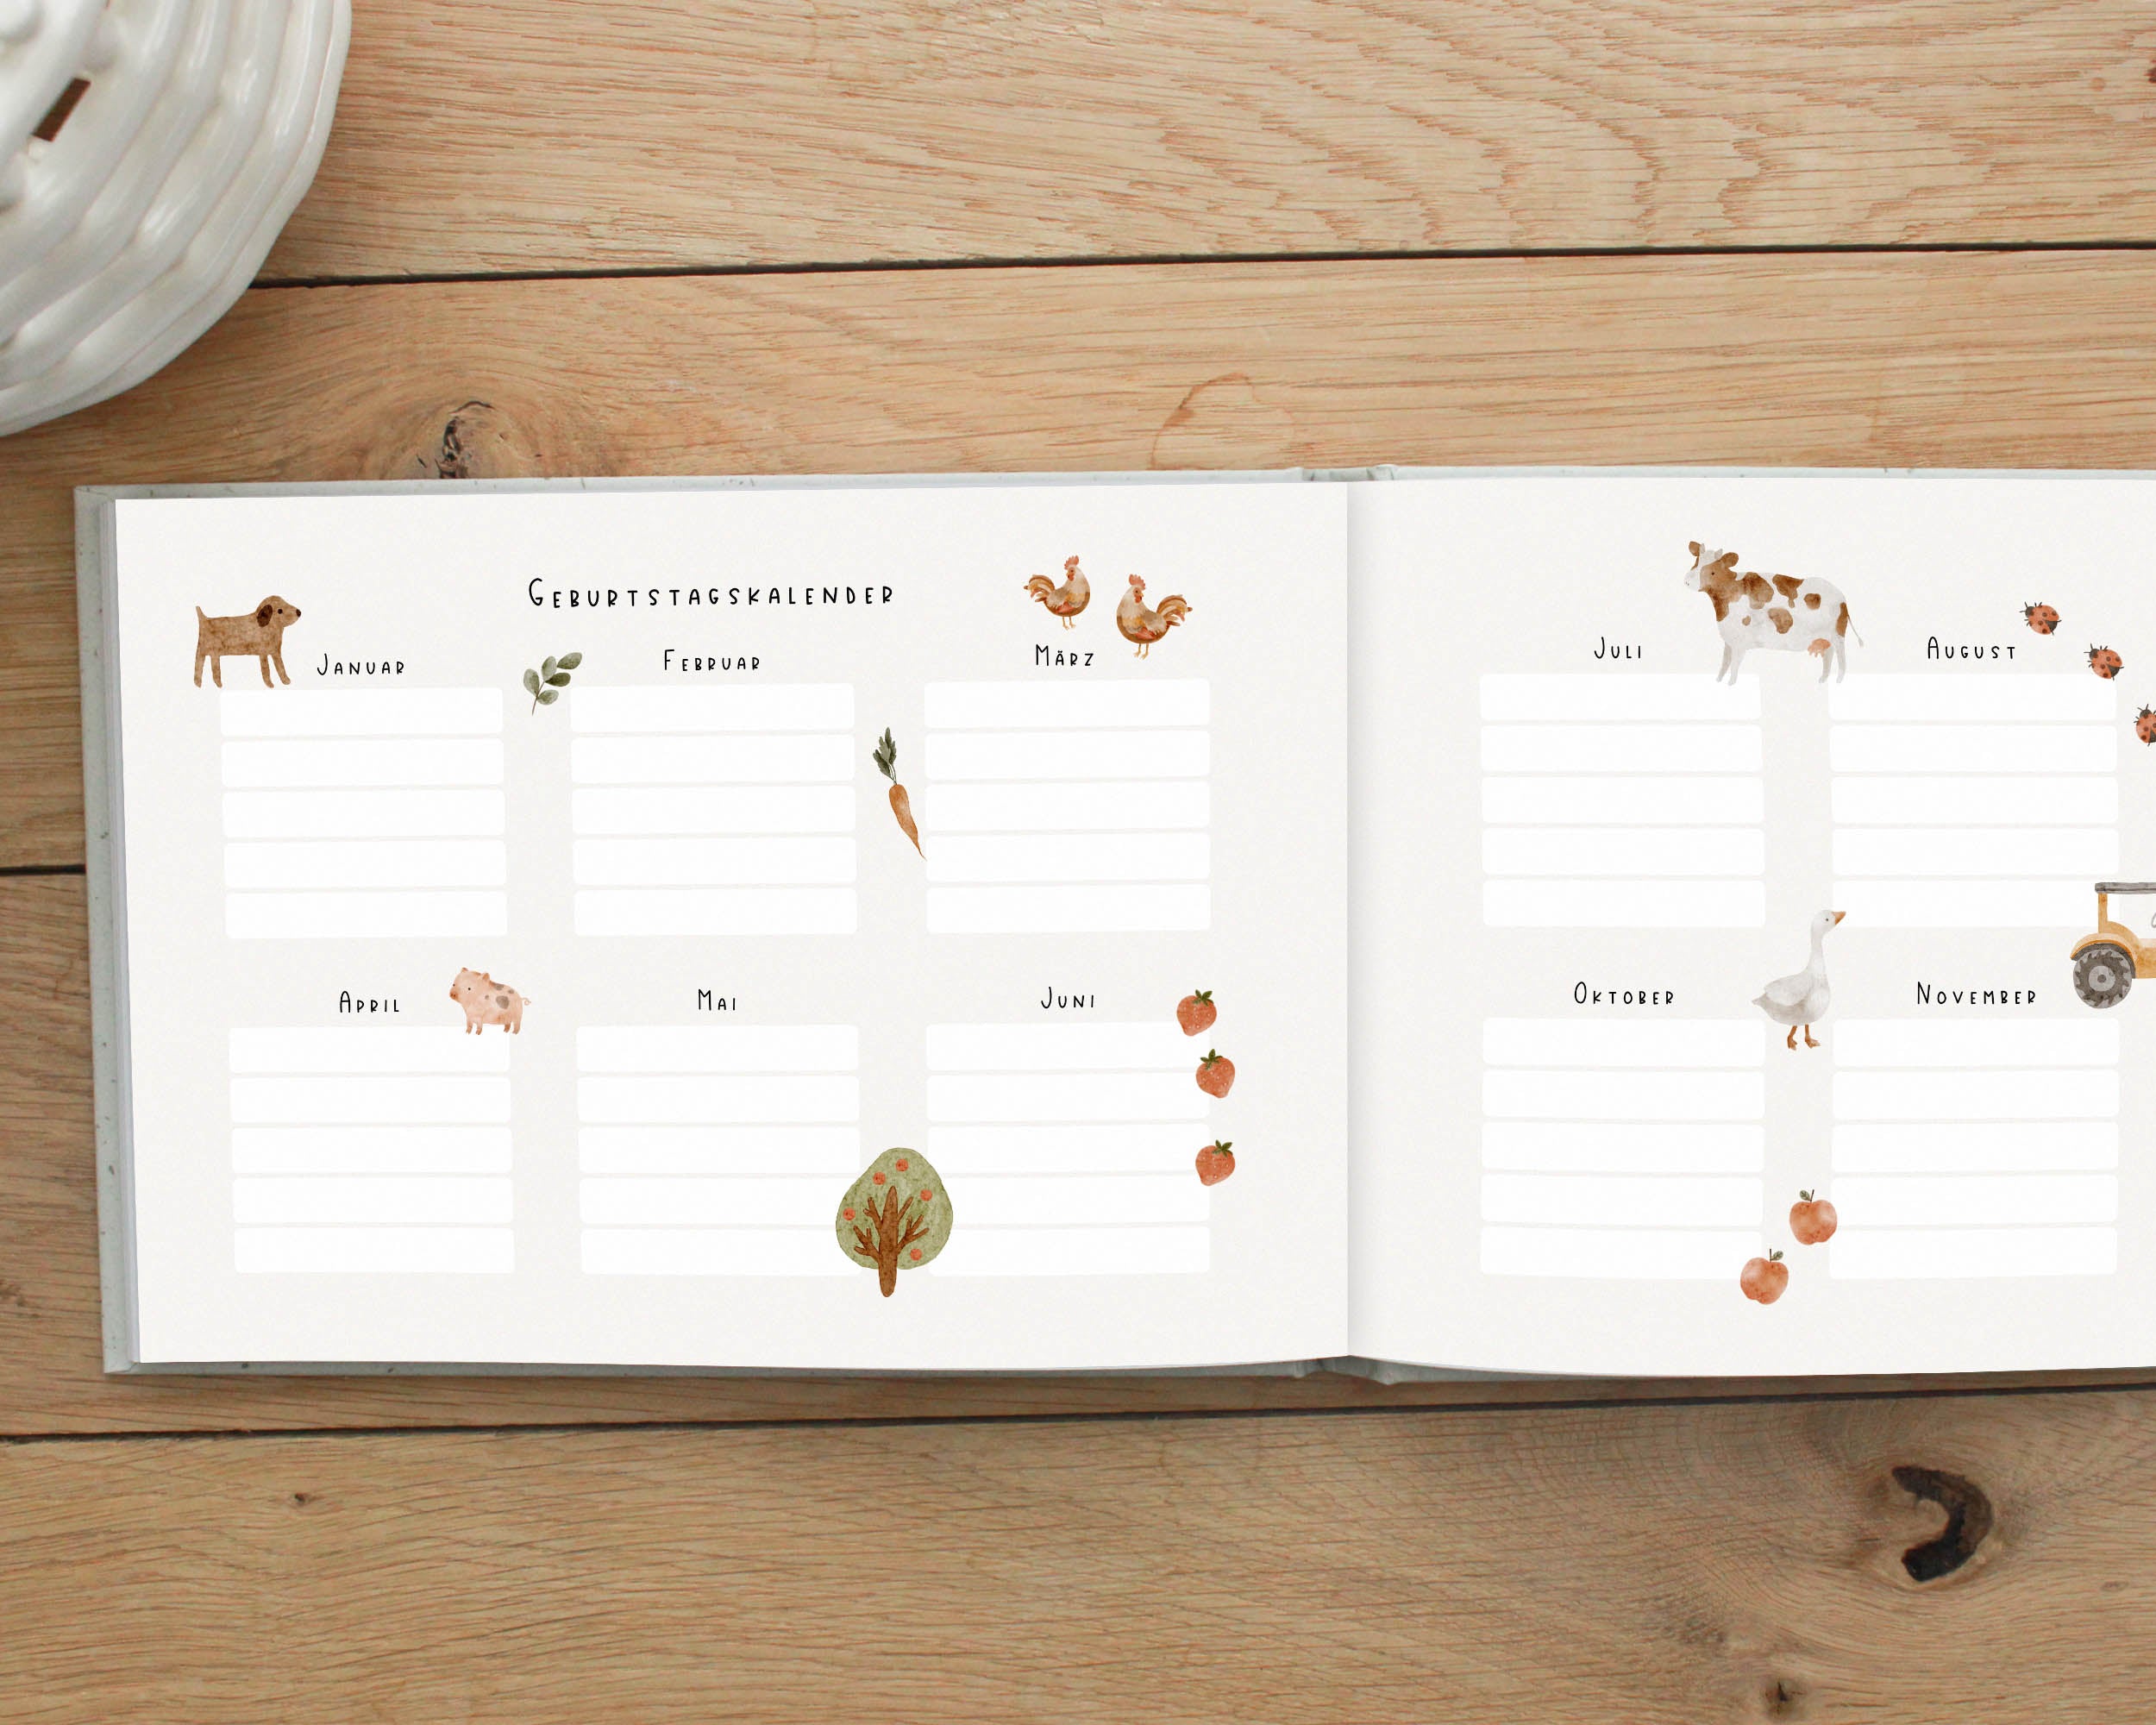 Geburtstagskalender
Januar
Februar
März
April
Mai
Juni
Juli
August
Oktober
November